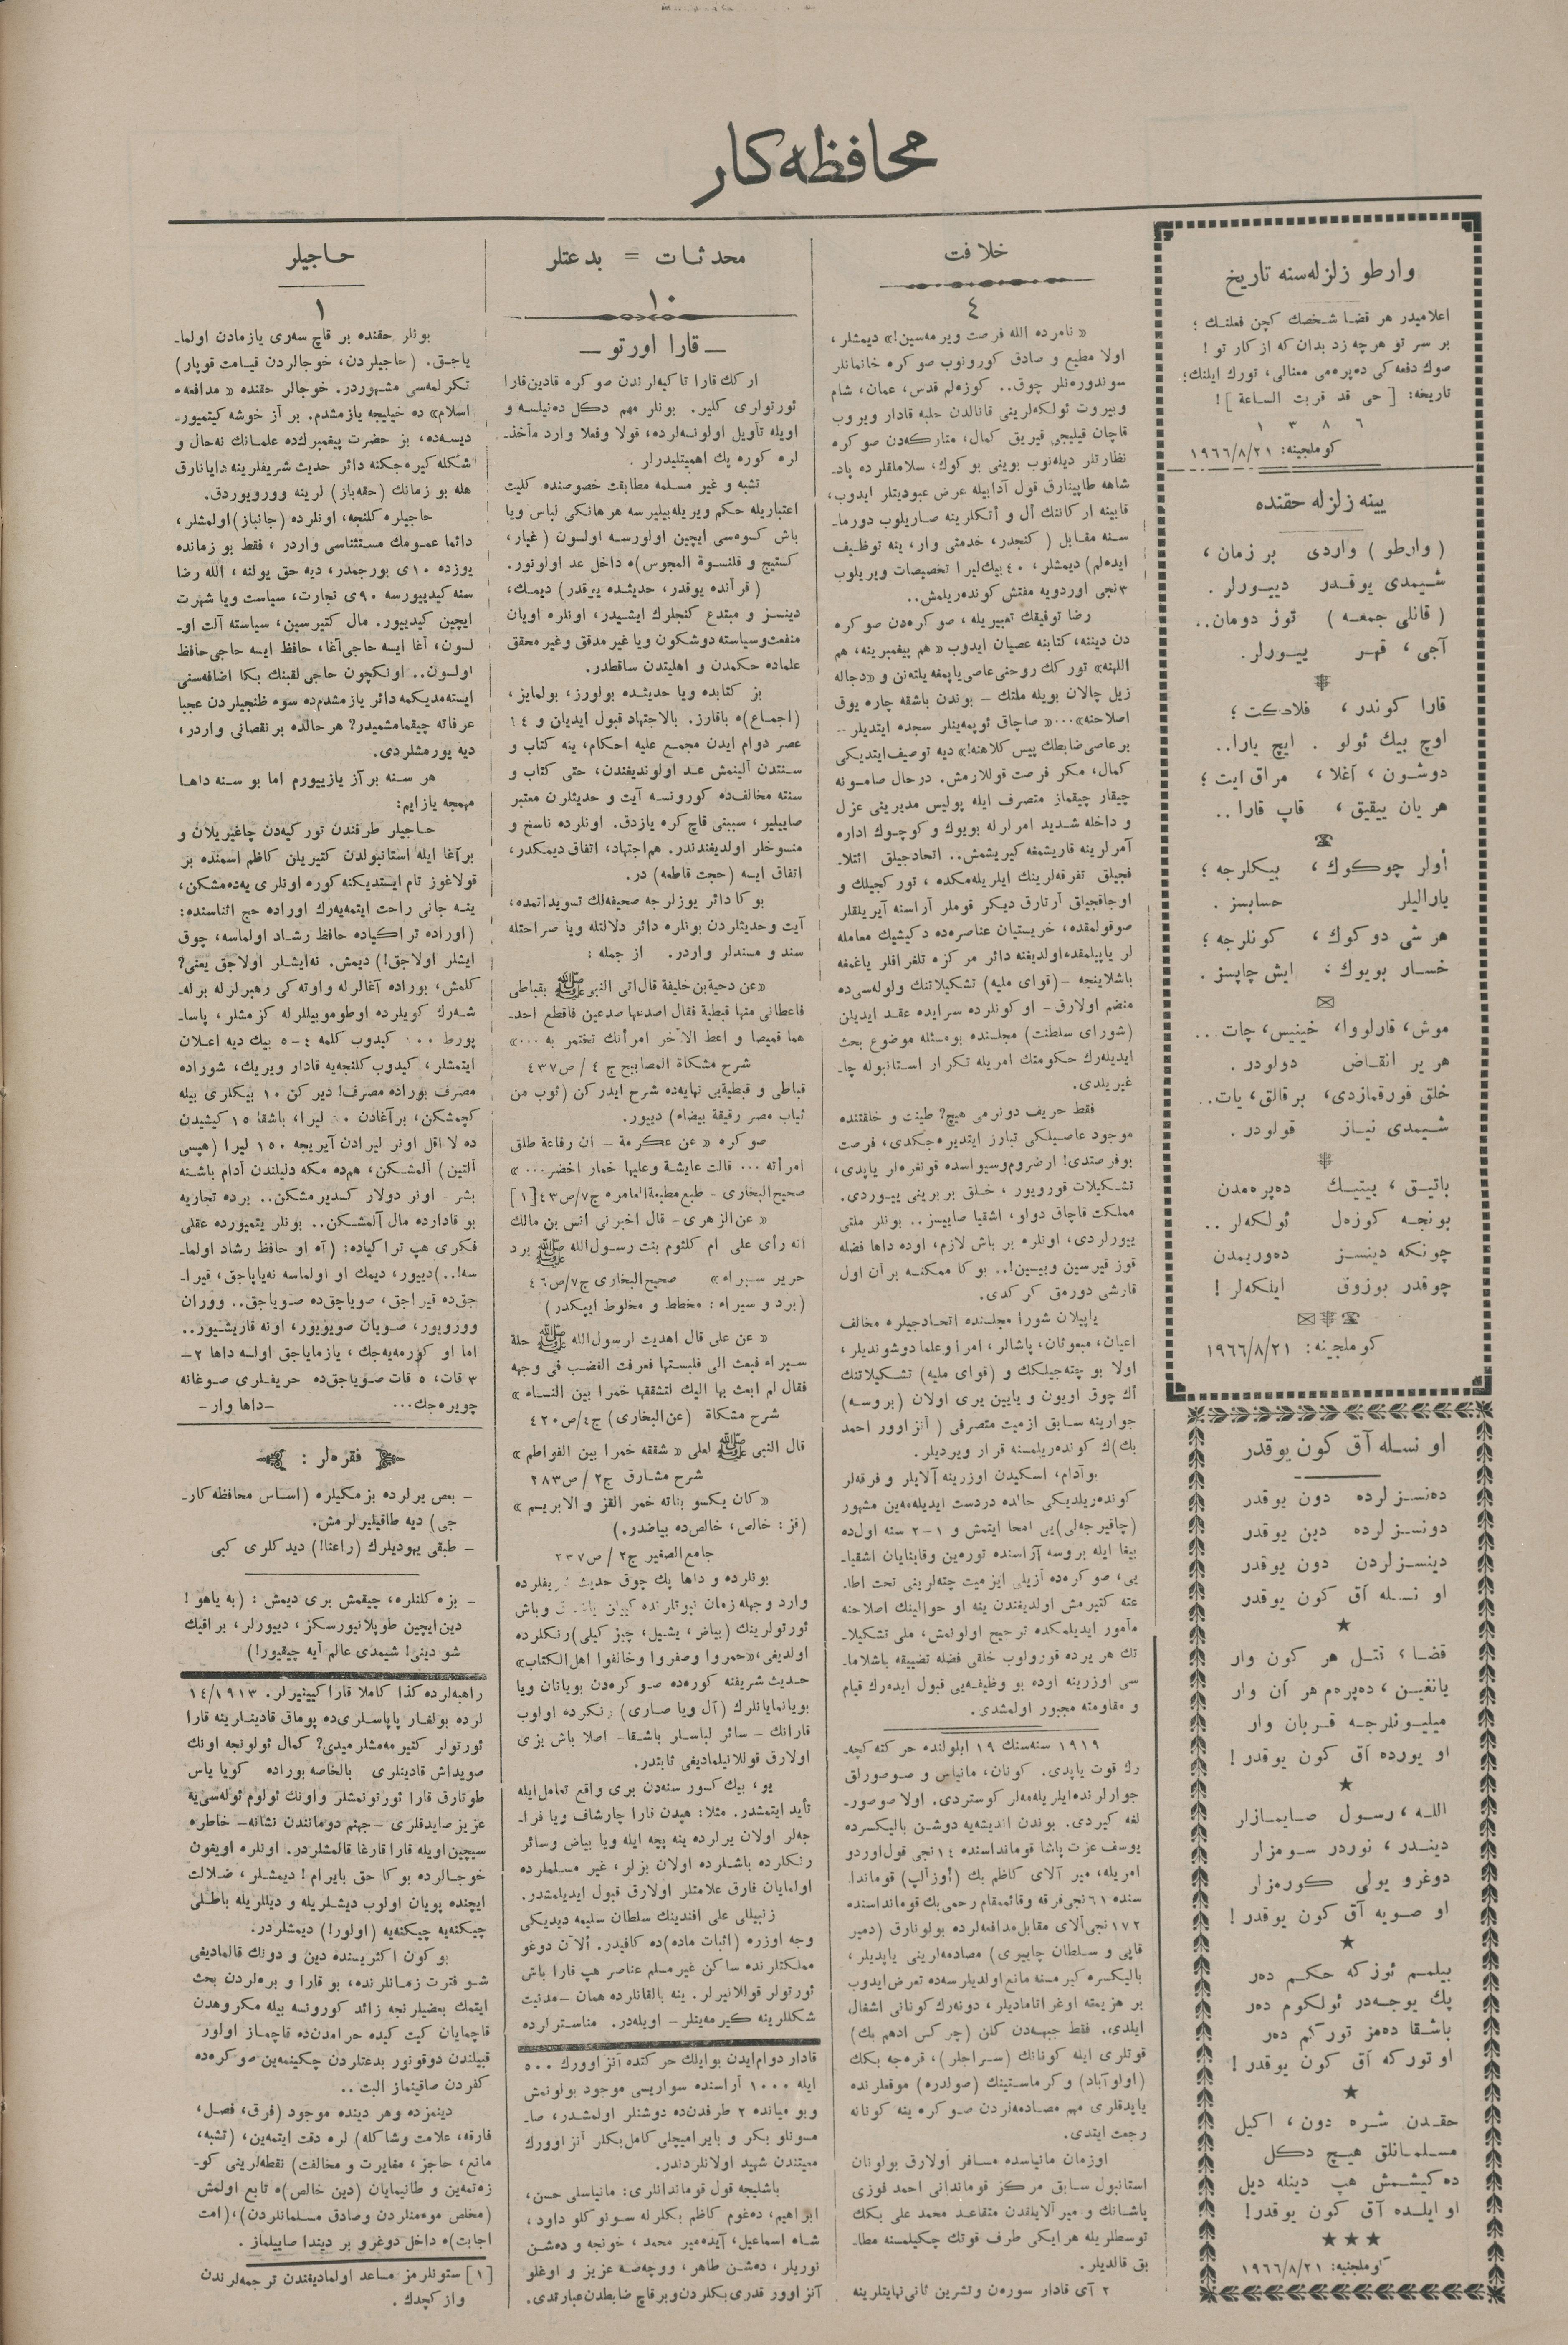 محافظه‌كار
وارطو زلزله‌سنه تاریخ
اعلامیدر هر قضا شخصك كچن فعلنـك ؛
بر سر تو هرچه زد بدان كه از كار تو !
صوك دفعه كی ده‌پره‌می معنالی، تورك ایلنك؛
تاریخه: [حی قد قربت الساعة] !
٦ ٨ ٣ ١
كوملجینه: ١٩٦٦/٨/٢١
یینه زلزله حقنده
( وارطو ) واردی بر زمان ،
شـیمدی یوقـدر دییـورلر .
( قانلی جمعـه ) توز دومان..
آجی ، قهـر ییـورلر.
قارا كوندر ، فلاكت ؛
اوچ بیك ئولو . ایچ یارا..
دوشـون ، آغلا ، مراق ایت ؛
هر یان ییقیق ، قاپ قارا ..
أولر چوكـوك ، بیكلرجه ؛
یارالیلر حسابسز .
هر شی دوكوك ، كونلرجه ؛
خسـار بویوك ، ایش چاپسز .
موش، قارلووا، خینیس، چات...
هر یر انقـاض دولودر .
خلق قورقمازدی، بر قالق، یات..
شـیمدی نیـاز قولودر .
باتیـق ، ییتیـك ده‌پره‌مدن
بونجـه كوزه‌ل ئولكه‌لر ..
چونكه دینسـز ده‌وریمدن
چوقدر بوزوق ایلكه‌لر !
كوملجینه: ١٩٦٦/٨/٢١
او نسـله آق كون یوقدر
ده‌نسـزلرده دون یوقدر
دونسـزلرده دین یوقدر
دینسـزلردن دون یوقدر
او نسـله آق كون یوقدر
قضـا ، قتـل هر كون وار
یانغیـن ، ده‌پره‌م هر آن وار
میلیـونلرجـه قـربان وار
او یورده آق كون یوقدر !
اللـه ، رسـول صایمـازلر
دینـدر ، نوردر سـومزلر
دوغرو یولی كورمزلر
او صـویه آق كون یوقدر !
بیلمـم ئوزكه حكـم ده‌ر
پك یوجـه‌در ئولكوم ده‌ر
باشـقا ده‌مز توركم ده‌ر
او توركه آق كون یوقدر !
حقـدن شـره دون ، اكیل
مسـلمـانلق هیـچ دكل
ده‌كیشـمش هپ دینله دیل
او ایلـده آق كون یوقدر!
كوملجنیه: ١٩٦٦/٨/٢١
خلافت
٤
« نامرده الله فرصت ویرمه‌سین!» دیمشلر ،
اولا مطیع و صادق كورونوب صوكره خانمانلر
سوندوره‌نلر چوق.. كوزه‌لم قدس، عمان، شام
و بیروت ئولكه‌لرینی قانالدن حلبه قادار ویروب
قاچان قیلیجی قیریق كمال، متاركه‌دن صوكره
نظارتلر دیله‌نوب بوینی بوكوك، سلاملقلرده پاد-
شاهه طاپینارق قول آدابیله عرض عبودیتلر ایدوب،
قابینه اركاننك أل و أتكلرینه صاریلوب دورما-
سـنه مقـابل ( كنجدر، خدمتی وار، ینه توظـیف
ایده‌لم) دیمشلر، ٤٠ بیك لیرا تخصیصات ویریلوب
٣ نجی اوردویه مفتش كونده‌ریلمش..
رضا توفیقك تعبیریله ، صوكره‌دن صوكره
دن دیننه، كتابنه عصیان ایدوب « هم پیغمبرینه، هم
اللهنه» توركك روحنی عاصی یاپمغه یلته‌نن و «دجاله
زیل چالان بویله ملتك – بوندن باشقه چاره یوق
اصلاحنه»...« صاچاق ئوپمه‌ینلر سجده ایتدیلر –
بر عاصی ضابطك پیس كلاهنه!» دیه توصیف ایتدیكی
كمال، مكر فرصت قوللارمش. درحال صامسونه
چیقار چیقماز متصرف ایله پولیس مدیرینی عزل
و داخله شـدید امرلرله بویوك و كوچـوك اداره
آمرلرینه قاریشمغه كیریشمش.. اتحادجیلق ائتلا-
فجیلق تفرقه‌لرینك ایلریله‌مكده ، توركجیلك و
اوجاقجیلق آرتارق دیكر قوملر آراسنه آیریلقلر
صوقولمقده، خریستیان عناصره‌ده دكیشیك معامله
لر یاپیلمقده‌اولدیغنه دائر مركزه تلغرافلر یاغمغه
باشلاینجه –(قوای ملیه) تشكیلاتنك ولوله‌سی ده
منضم اولارق– او كونلرده سرایده عقـد ایدیلن
(شورای سلطنت) مجلسنده بومسئله موضوع بحث
ایدیله‌رك حكومتك امریله تكرار استانبوله چا-
غیریلدی.
فقط حریف دونرمی هیچ؟ طینت و خلقتنده
موجود عاصیلكی تبارز ایتدیره‌جكدی، فرصت
بو فرصتدی! ارضروم و سیواسده قونغره‌لر یاپدی،
تشـكیلات قورویور ، خـلق بر برینی یییـوردی.
مملكت قاچاق دولو، اشقیا صاییسز.. بونلر ملتی
یییورلردی، اونلره بر باش لازم، اوده داها فضله
قوز قیرسین و ییسین!.. بوكا ممكنسه بر آن اول
قارشی دورمق كركدی.
یاپیلان شورا مجلسنده اتحـادجیلره مخالف
اعیان، مبعوثان، پاشالر، امرا و علما دوشوندیلر،
اولا بو چته‌جیلكك و (قوای ملیه) تشـكیلاتنك
أك چوق اویون و یایین یری اولان (بروسـه)
جوارینه سـابق ازمیت متصرفی ( آنزاوور احمد
بك)ك كونده‌ریلمسنه قرار ویردیلر.
بو آدام، اسكیدن اوزرینه آلایلر و فرقه‌لر
كونده‌ریلدیكی حالده دردست ایدیله‌مه‌ین مشهور
(چاقیرجه‌لی)یی امحا ایتمش و ١–٢ سنه اول‌ده
بیغا ایله بروسه آراسنده توره‌ین و قابنایان اشقیا-
یی، صوكره‌ده آزیلی ایزمیت چته‌لرینی تحت اطا-
عته كتیرمش اولدیغندن ینه او حوالینك اصلاحنه
مأمور ایدیلمكده ترجیح اولونمش، ملی تشكیلا-
تك هر یرده قورولوب خلقی فضله تضییقه باشلاما-
سی اوزرینه اوده بو وظیفـه‌یی قبول ایده‌رك قیام
و مقاومته مجبور اولمشدی.
١٩١٩ سنه‌سنك ١٩ ایلولنده حركته كچه-
رك قوت یاپدی. كونان، مانیاس و صوصورلق
جوارلرنده ایلریله‌مه‌لر كوستردی. اولا صوصور-
لغه كیردی. بوندن اندیشه‌یه دوشـن بالیكسرده
یوسف عزت پاشا قومانداسنده ١٤ نجی قول‌اوردو
امریله، میر آلای كاظم بك (أوزآلپ) قوماندا-
سنده ٦١ نجی فرقه و قائممقام رحمی بك قومانداسنده
١٧٢ نجی آلای مقابل مدافعه‌لرده بولونارق (دمیر
قاپی و سـلطان چاییری) مصادمه‌لرینی یاپدیلر ،
بالیكسره كیرمسنه مانع اولدیلرسه‌ده تعرض ایدوب
بر هزیمته اوغراتامادیلر، دونه‌رك كونانی اشغال
ایلدی. فقط جبهه‌دن كلن (چركس ادهم بك)
قوتلری ایله كونانك (سـراجلر)، قره‌جه بكك
(اولوآباد) و كرماستینك (صولدره) موقعلرنده
یاپدقلری مهم مصـادمه‌لردن صـوكره ینه كونانه
رجعت ایتدی.
اوزمان مانیاسده مسافر أولارق بولونان
استانبول سـابق مركز قوماندانی احمد فوزی
پاشـانك و میر آلایلقدن متقاعـد محمد علی بكك
توسطلریله هر ایكی طرف قوتك چكیلمسنه مطا-
بق قالدیلر.
٢ آی قادار سوره‌ن و تشرین ثانی نهایتلرینه
محدثـات = بدعتلر
١٠
— قارا اورتو —
اركك قارا تاكیه‌لرندن صوكره قادین قارا
ئورتولری كلیر. بونلر مهم دكل ده‌نیلسه و
اویله تأویل اولونـه‌لرده، قولا و فعلا وارد مأخذ-
لره كوره پك اهمیتلیدرلر .
تشبه و غیر مسلمه مطابقت خصوصنده كلیت
اعتباریله حكم ویریله‌بیلیرسه هرهانكی لباس ویا
باش كـوه‌سی ایچین اولورسـه اولسـون (غیار،
كستیج و قلنسوة المجوس)ه داخل عد اولونور.
(قرآنده یوقدر، حدیثـده یوقدر) دیمـك،
دینسـز و مبتدع كنجلرك ایشـیدر، اونلره اویان
منفعت‌وسیاسته دوشكون ویا غیرمدقق وغیرمحقق
علماده حكمدن و اهلیتدن ساقطدر.
بز كتابده ویا حدیثـده بولورز، بولمایز،
(اجمـاع)ه باقارز. بالاجتهاد قبول ایدیلن و ١٤
عصر دوام ایدن مجمـع علیه احكام، ینه كتاب و
سـنتدن آلینمش عـد اولوندیغندن، حتی كتاب و
سنته مخالف‌ده كورونسـه آیت و حدیثلرن معتبر
صاییلیر، سببنی قاچ كره یازدق. اونلرده ناسخ و
منسوخلر اولدیغندندر. هم اجتهاد، اتفاق دیمكدر،
اتفاق ایسه (حجت قاطعه) در.
بوكا دائر یوزلرجه صحیفه‌لك تسویداتمده،
آیت و حدیثلردن بونلره دائر دلالتله ویا صراحتله
سند و مسندلر واردر. از جمله :
«عن دحیة بن خلیفة قال اتی النبی ﷺ بقباطی
فاعطانی منها قبطیة فقال اصدعها صدعین فاقطع احد-
هما قمیصا و اعط الآخر امرأتك تختمر به ...»
شرح مشكاة المصابیح ج ٤ / ص ٤٣٧
قباطی و قبطیه‌یی نهایه‌ده شرح ایدركن (ثوب من
ثیاب مصر رقیقة بیضاء) دییور.
صوكره « عن عكرمة – ان رفاعة طلق
امرأته ... قالت عایشة وعلیها خمار اخضر... »
صحیح‌البخاری – طبع مطبعة‌العامره ج٧/ص٤٣[١]
« عن الزهری – قال اخبرنی انس بن مالك
انه رأی علی ام كلثوم بنت رسول الله ﷺ برد
حریر سـیراء» صحیح البخاری ج٧/ص٤٦
(برد و سیراء : مخطط و مخلوط ایپكدر)
« عن علی قال اهدیت لرسول الله ﷺ حلة
سـیراء فبعث الی فلبستها فعرفت الغضب فی وجهه
فقال لم ابعث بها الیك لتشققها خمرا بین النسـاء »
شرح مشكاة (عن البخاری) ج٤/ص٤٢٠
قال النبی ﷺ لعلی « شققه خمرا بین الفواطم »
شرح مشـارق ج٢ / ص٢٨٣
«كان یكسو بناته خمر القز و الابریسم »
(قز : خالص، خالص‌ده بیاضدر.)
جامع الصغیر ج٢ / ص ٢٣٧
بونلرده و داها پك چوق حدیث شریفلرده
وارد وجهله زمان نبوتلرنده وباش
ئورتولرینك (بیاض، یشـیل، چیزكیلی) رنكلرده
اولدیغی، «حمروا وصفروا وخالفوا اهل الكتاب»
حـدیث شریفنه كوره‌ده صـوكره‌دن بویانان ویا
بویانمایانلرك (آل ویا صاری) رنكرده اولوب
قارانك – سائر لباسلر باشـقا– اصلا باش بزی
اولارق قوللانیلمادیغی ثابتدر.
بو ، بیك كسور سنه‌دن بری واقع تعامل‌ایله
تأید ایتمشدر. مثلا: هپدن قارا چارشاف ویا فرا-
جه‌لر اولان یرلرده ینه پچه ایله ویا بیاض وسائر
رنكلرده باشـلرده اولان بزلر ، غیر مسـلملرده
اولمایان فارق علامتلر اولارق قبول ایدیلمشدر.
زنبیللی علی افندینك سلطان سلیمه دیدیكی
وجه اوزره (اثبات ماده)ده كافیدر. ألآن دوغو
مملكتلرنده ساكن غیر مسلم عناصر هپ قارا باش
ئورتولر قوللانیرلر. ینه بالقانلرده همان –مدنیت
شكللرینه كیرمه‌ینلر– اویله‌در. مناسـترلرده
قادار دوام ایدن بو ایلك حركتده آنزاوورك ٥٠٠
ایله ١٠٠٠ آراسنده سواریسی موجود بولونمش
وبو میانده ٢ طرفدن‌ده دوشنلر اولمشـدر، صا-
مونلو بكر و بایرامیچلی كامل بكلر آنزاوورك
معیتندن شهید اولانلردندر.
باشلیجه قول قوماندانلری: مانیاسلی حسن،
ابراهیم، ده‌غوم كاظم بكلرله سـونوكلو داود،
شـاه اسماعیل، آیده‌میر محمد ، خونجه و ده‌شـن
نوریلر، ده‌شـن طاهر، ووچه‌صـه عزیز و اوغلو
آنزاوور قدری بكلردن وبرقاچ ضابطدن عبارتدی.
حـاجیلر
١
بونلر حقنده بر قاچ سه‌ری یازمادن اولما-
یاجـق. (حاجیلردن، خوجالردن قیـامت قوپار)
تكرلمه‌سی مشهوردر. خوجالر حقنده « مدافعه‌ء
اسلام» ده خیلیجه یازمشدم. بر آز خوشه كیتمیور-
دیسـه‌ده، بز حضرت پیغمبرك‌ده علمـانك نه‌حال و
شكله كیره‌جكنه دائر حدیث شریفلرینه دایانارق
هله بو زمانك (حقه‌باز) لرینه ووریوردق.
حاجیلره كلنجه، اونلرده (جانباز) اولمشلر،
دائما عمـومك مسـتثناسی واردر ، فقط بو زمانده
یوزده ١٠ ی بورجمدر، دیه حق یولنه ، الله رضا
سنه كیدییورسه ٩٠ ی تجارت، سیاست ویا شهرت
ایچین كیدییور. مال كتیرسین، سیاسته آلت او-
لسون، آغا ایسه حاجی آغا، حافظ ایسه حاجی حافظ
اولسون.. اونكچون حاجی لقبنك بكا اضافه‌سنی
ایسته‌مدیكمه دائر یازمشدم‌ده سوء ظنجیلردن عجبا
عرفاته چیقمامشمیدر؟ هر حالده بر نقصانی واردر،
دیه یورمشلردی.
هر سـنه بر آز یازییورم اما بو سـنه داهـا
مهمجه یازایم:
حـاجیلر طرفندن توركیه‌دن چاغیریلان و
بر آغا ایله استانبولدن كتیریلن كاظم اسمنده بر
قولاغوز تام ایستدیكنه كوره اونلری یه‌ده‌مشكن،
ینـه جانی راحت ایتمه‌یه‌رك اوراده حج اثناسنده:
(اوراده تراكیاده حافظ رشـاد اولماسه، چوق
ایشلر اولاجق!) دیمش. نه‌ایشلر اولاجق یعنی؟
كلمش، بوراده آغالرله واوته‌كی رهبرلرله بزله-
شـه‌رك كویلرده اوطوموبیللرله كزمشلر، پاسا-
پورط ١٠٠ كیدوب كلمه ٤–٥ بیك دیه اعلان
ایتمشلر، كیدوب كلنجه‌یه قادار ویریك، شوراده
مصرف بوراده مصرف! دیركن ١٠ بیكلری بیله
كچمشكن، بر آغادن ٢٠ لیرا، باشقا ١٥ كیشیدن
ده لا اقل اونر لیرادن آیریجه ١٥٠ لیرا (هپسی
آلتین) آلمشـكن، هم‌ده مكه دلیلندن آدام باشـنه
بشر اونر دولار كسدیرمشكن.. برده تجاریه
بو قادارده مال آلمشـكن.. بونلر یتمیورده عقلی
فـكری هپ تراكیاده: (آه او حافظ رشاد اولما-
سه!..) دییور، دیمك او اولماسه نه‌یاپاجق، قیرا-
جق‌ده قیراجق، صویاجق‌ده صویاجق.. ووران
وورویور، صـویان صویویور، اونه قاریشـیور..
اما او كورمه‌یه‌جك ، یازمایاجق اولسه داها ٢–
٣ قات، ٥ قات صـویاجق‌ده حریفـلری صـوغانه
چویره‌جك... –داها وار–
فقره‌لر :
– بعض یرلرده بزمكیلره (اسـاس محافظه‌كار-
جی) دیه طاقیلیرلرمش.
– طبقی یهودیلرك (راعنا!) دیدكلری كبی
– بزه كلنلره، چیقمش بری دیمش : (به یاهو !
دین ایچین طوپلانیورسكز، دییورلر، براقیك
شو دینی! شیمدی عالم آیه چیقیور!)
راهبه‌لرده كذا كاملا قارا كیینیرلر. ١٤/١٩١٣
لرده بولغـار پاپاسـلری‌ده پوماق قادینلرینه قارا
ئورتولر كتیرمه‌مشلرمیدی؟ كمال ئولونجه اونك
صویداش قادینلری بالخاصه بوراده كویا یاس
طوتارق قارا ئورتونمشلر واونك ئولوم ئوله‌سی‌یه
عزیز صایدقلری –جهنم دومانندن نشانه– خاطره
سیچین اویله قارا قارغا قالمشلردر. اونلره اویقون
خوجـالرده بوكا حق بایرام! دیمشـلر، ضـلالت
ایچنده پویان اولوب دیشـلریله و دیللریله باطـلی
چیكنه‌یه چیكنه‌یه (اولور!) دیمشلردر.
بو كون اكثریسنده دین و دونك قالمادیغی
شـو فترت زمـانلرنده، بو قارا و بره‌لردن بحث
ایتمك بعضیلرنجه زائد كورونسه بیله مكروهدن
قاچمایان كیت كیده حرامدن‌ده قاچمـاز اولور
قبیلندن دوقونور بدعتلردن چكینمه‌ین صوكره‌ده
كفردن صاقینماز البت ..
دینمزده وهر دینده موجود (فرق، فصل،
فارقه، علامت وشاكله) لره دقت ایتمه‌ین، (تشبه،
مانع، حاجز، مغایرت و مخالفت) نقطه‌لرینی كو-
زتمه‌ین و طانیمایان (دین خالص)ه تابع اولمش
(مخلص موءمنلردن وصادق مسلمانلردن)، (امت
اجابت)ه داخل دوغرو بر دیندا صاییلماز .
[١] ستونلرمز مساعد اولمادیغندن ترجمه‌لرندن
واز كچدك .